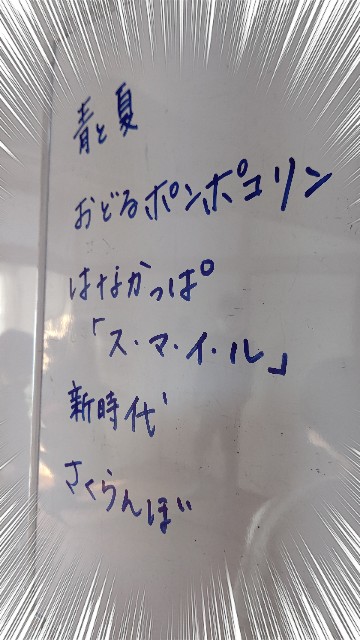 青と夏
おどるポンポコリン
はなかっぱ
「ス・マ・イ・ル」
新時代
さくらんぼ